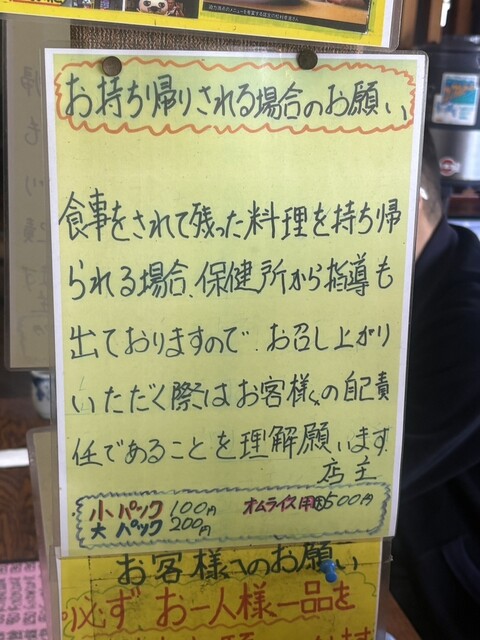 お持ち帰りされる場合のお願い
食事をされて残った料理を持ち帰
られる場合、保健所から指導も
出ておりますので、お召し上がり
いただく際はお客様の自己責
任であることを理解願います。
店主
小パック 100円 オムライス用 500円
大パック 200円
お客様へのお願い
必ずお一人様一品を